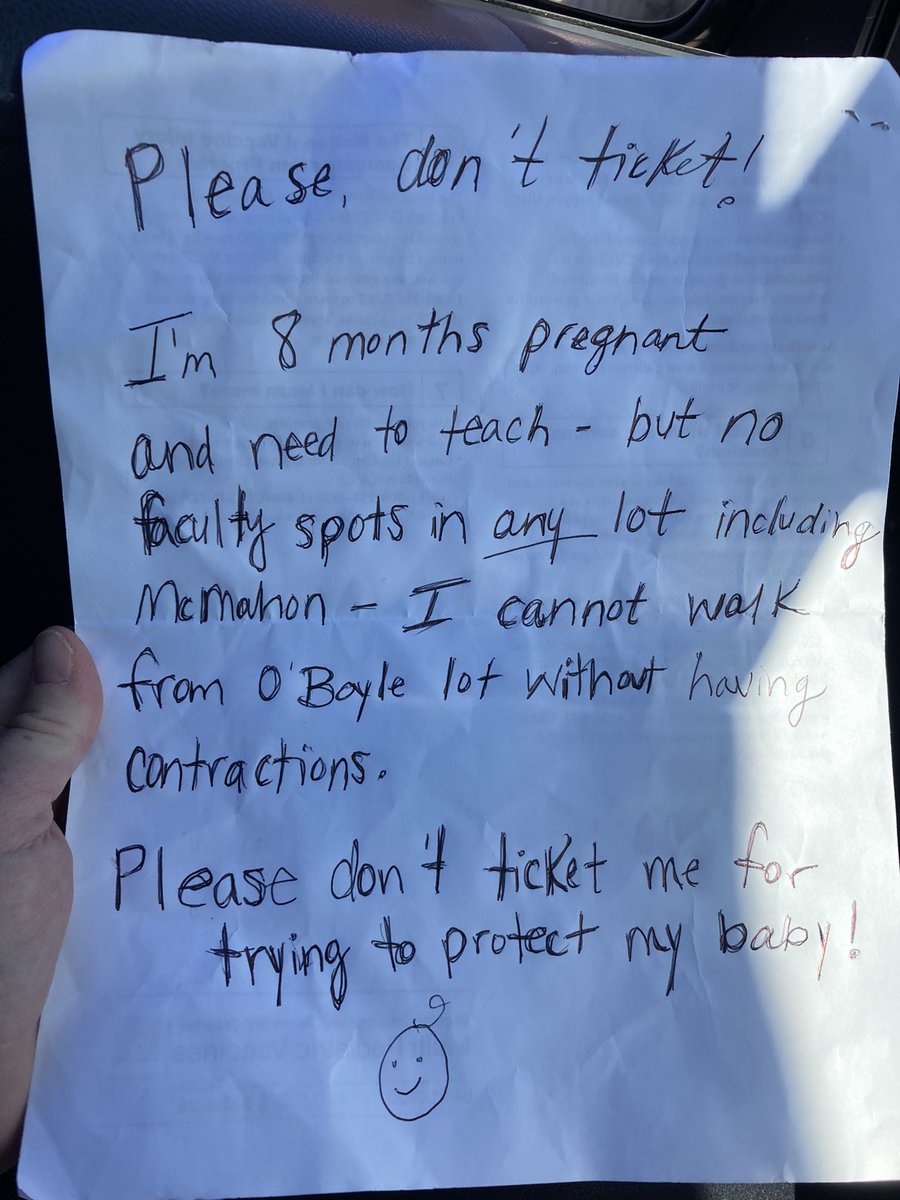 Please, don't ticket!
I'm 8 months pregnant
and need to teach - but no
faculty spots in any lot including
McMahon - I cannot walk
from O'Boyle lot without having
contractions.
Please don't ticket me for
trying to protect my baby!